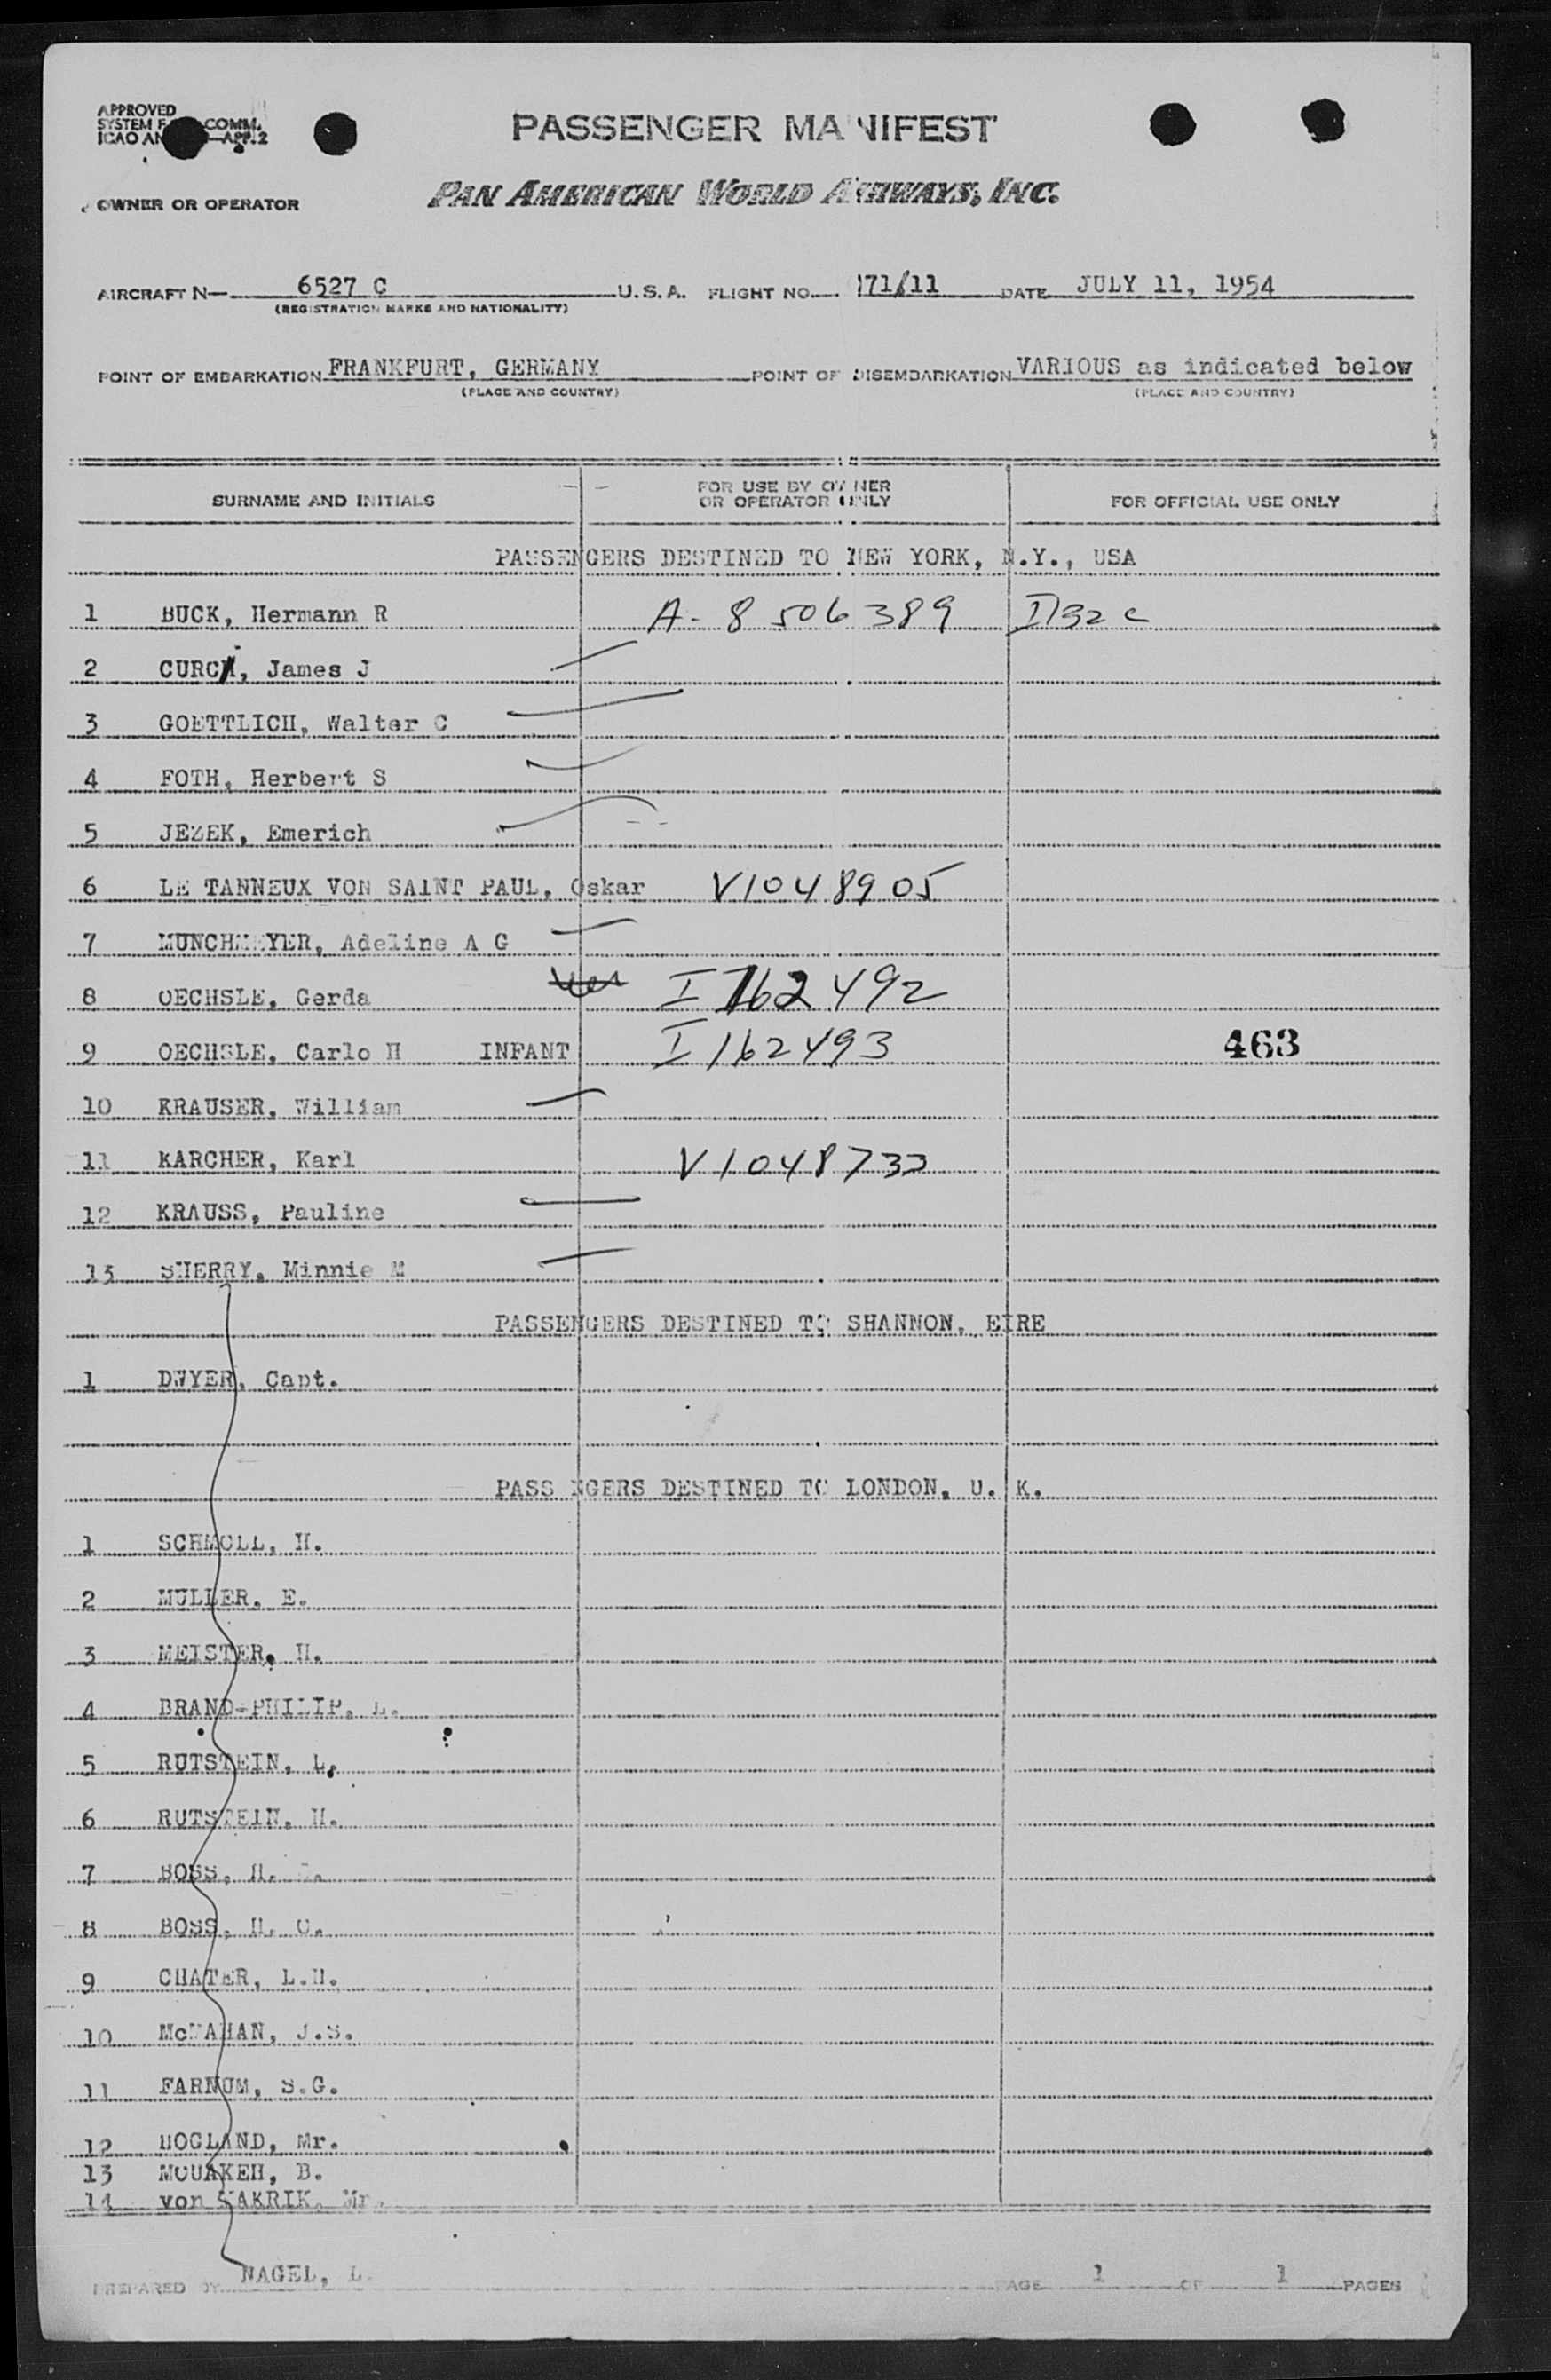 APPROVED
SYSTEM COMM.
ICAO APP. 2
PASSENGER MANIFEST
OWNER OR OPERATOR PAN AMERICAN WORLD AIRWAYS, INC.
AIRCRAFT N— 6527 C U.S.A. FLIGHT NO. 171/11 DATE JULY 11, 1954
(REGISTRATION MARKS AND NATIONALITY)
POINT OF EMBARKATION FRANKFURT, GERMANY POINT OF DISEMBARKATION VARIOUS as indicated below
(PLACE AND COUNTRY) (PLACE AND COUNTRY)
SURNAME AND INITIALS FOR USE BY OWNER OR OPERATOR ONLY FOR OFFICIAL USE ONLY
PASSENGERS DESTINED TO NEW YORK, N.Y., USA
1 BUCK, Hermann R A-8 506 389
2 CURCI, James J
3 GOETTLICH, Walter C
4 FOTH, Herbert S
5 JEZEK, Emerich
6 LE TANNEUX VON SAINT PAUL, Oskar V1048905
7 MUNCHMEYER, Adeline A G
8 OECHSLE, Gerda I 162492
9 OECHSLE, Carlo H INFANT I 162493 463
10 KRAUSER, William
11 KARCHER, Karl V1048733
12 KRAUSS, Pauline
13 SHERRY, Minnie M
PASSENGERS DESTINED TO SHANNON, EIRE
1 DWYER, Capt.
PASSENGERS DESTINED TO LONDON, U. K.
1 SCHMOLL, H.
2 MULLER, E.
3 MEISTER, H.
4 BRAND-PHILIP, L.
5 RUTSTEIN, L.
6 RUTSTEIN, H.
7 BOSS, H.
8 BOSS, H. C.
9 CHATER, L.H.
10 McMAHAN, J.S.
11 FARNUM, S.G.
12 HOGLAND, Mr.
13 MOUAKEH, B.
14 von Mr.
PREPARED BY NAGEL, L. PAGE 1 OF 1 PAGES